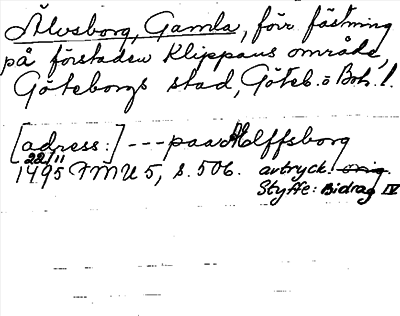 Älvsborg, Gamla, förr fästning
på förstaden Klippans område,
Göteborgs stad, Göteb. o Boh. l.
[adress:] --- paa Elffsborg
22/11
1495 FMU 5, s. 506. avtryck. orig.
Styffe: Bidrag IV